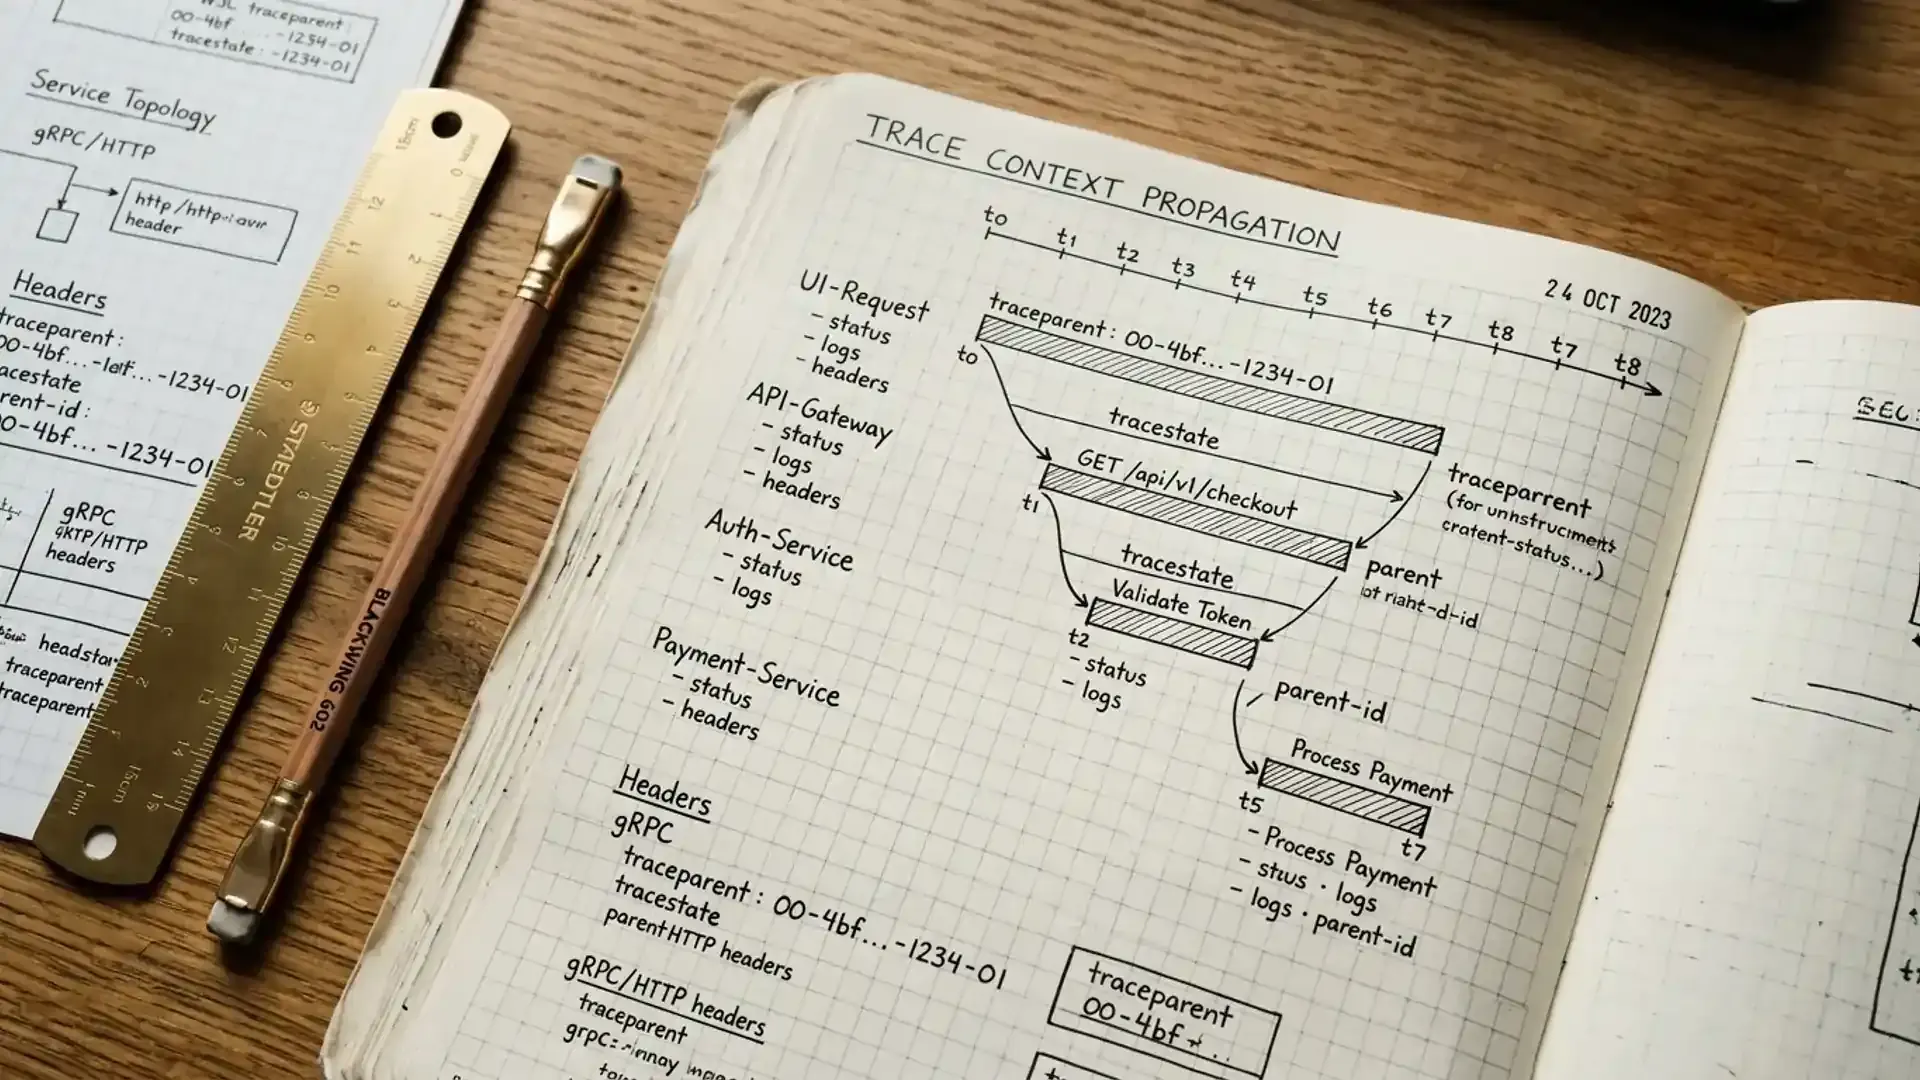 traceparent:
00-4bf... -1234-01
tracestate: -1234-01
Service Topology
gRPC/HTTP
header
Headers
traceparent:
00-4bf...-1234-01
acestate
rent-id:
00-4bf... -1234-01
gRPC
headers
traceparent
traceparent
STAEDTLER
BLACKWING 602
TRACE CONTEXT PROPAGATION
24 OCT 2023
t0 t1 t2 t3 t4 t5 t6 t7 t8 t7 t8
UI-Request
- status
- logs
- headers
API-Gateway
- status
- logs
- headers
Auth-Service
- status
- logs
Payment-Service
- status
- headers
traceparent: 00-4bf...-1234-01
t0
tracestate
GET /api/v1/checkout
t1
traceparrent
(for
tracestate
parent
Validate Token
t2
- status
- logs
parent-id
Process Payment
t5
t7
- Process Payment
- stus · logs
- logs · parent-id
Headers
gRPC
traceparent: 00-4bf...-1234-01
tracestate
parentHTTP headers
gRPC/HTTP headers
traceparent
traceparent
00-4bf